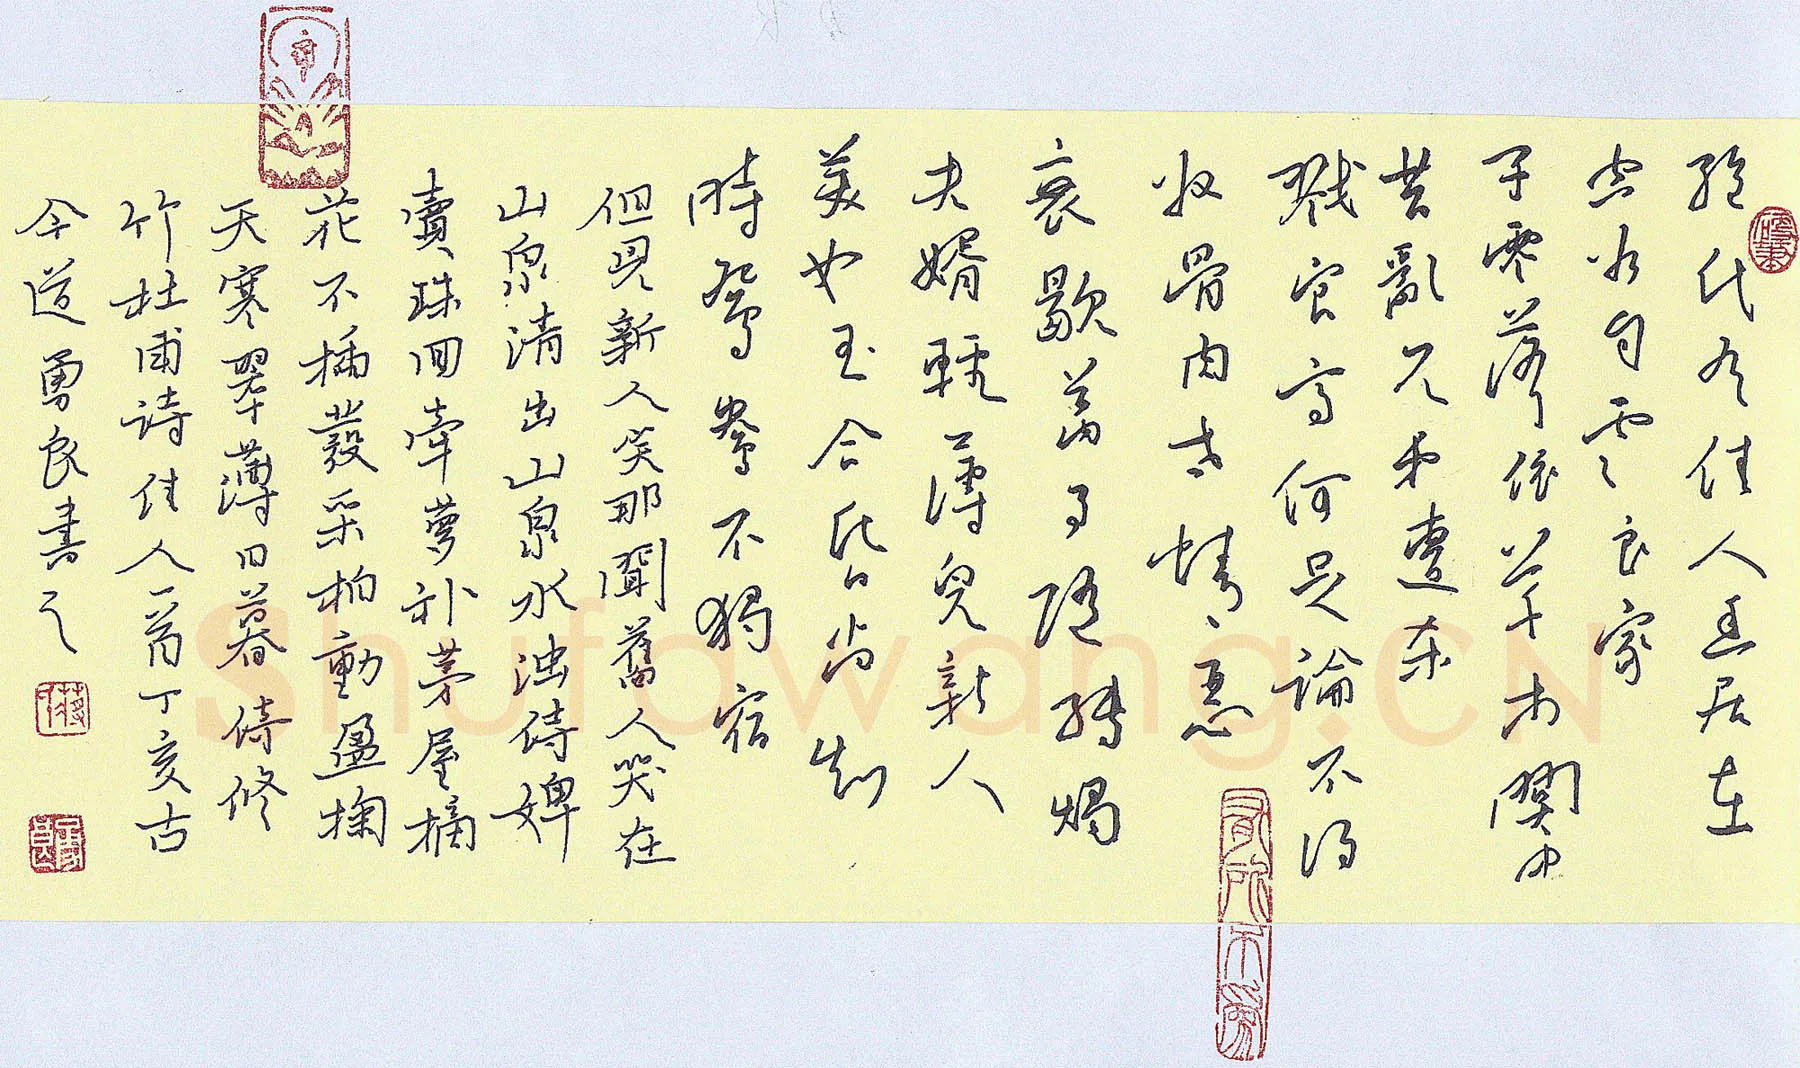 絕代有佳人幽居在
空谷自云良家
子零落依草木關中
昔亂兄弟遭殺
戮官高何足論不得
收骨肉世情惡
衰歇萬事隨轉燭
夫婿輕薄兒新人
美如玉合昏尚知
時鴛鴦不獨宿
但見新人笑那聞舊人哭在
山泉清出山泉水濁侍婢
賣珠回牽蘿補茅屋摘
花不插髮采柏動盈掬
天寒翠薄日暮倚修
竹杜甫詩佳人一首丁亥古
今道勇良書之
有所不為
Shufawang.CN